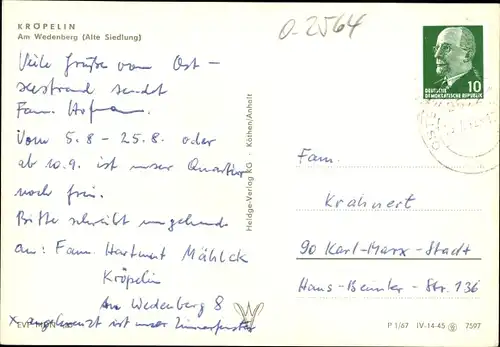 KRÖPELIN
Am Wedenberg (Alte Siedlung)
O-2564
Viele Grüße vom Ost-
seestrand sendet
Fam. Hofman
Vom 5.8 - 25.8. oder
ab 10.9. ist unser Quartier
noch frei.
Bitte schreibt umgehend
an: Fam. Hartmut Mählck
Kröpelin
Am Wedenberg 8
x angekreuzt ist unser Zimmerfenster
Heldge-Verlag KG - Köthen/Anhalt
10
DEUTSCHE
DEMOKRATISCHE REPUBLIK
Fam.
Krahnert
90 Karl-Marx-Stadt
Hans-Beimler-Str. 136
P 1/67 IV-14-45 7597